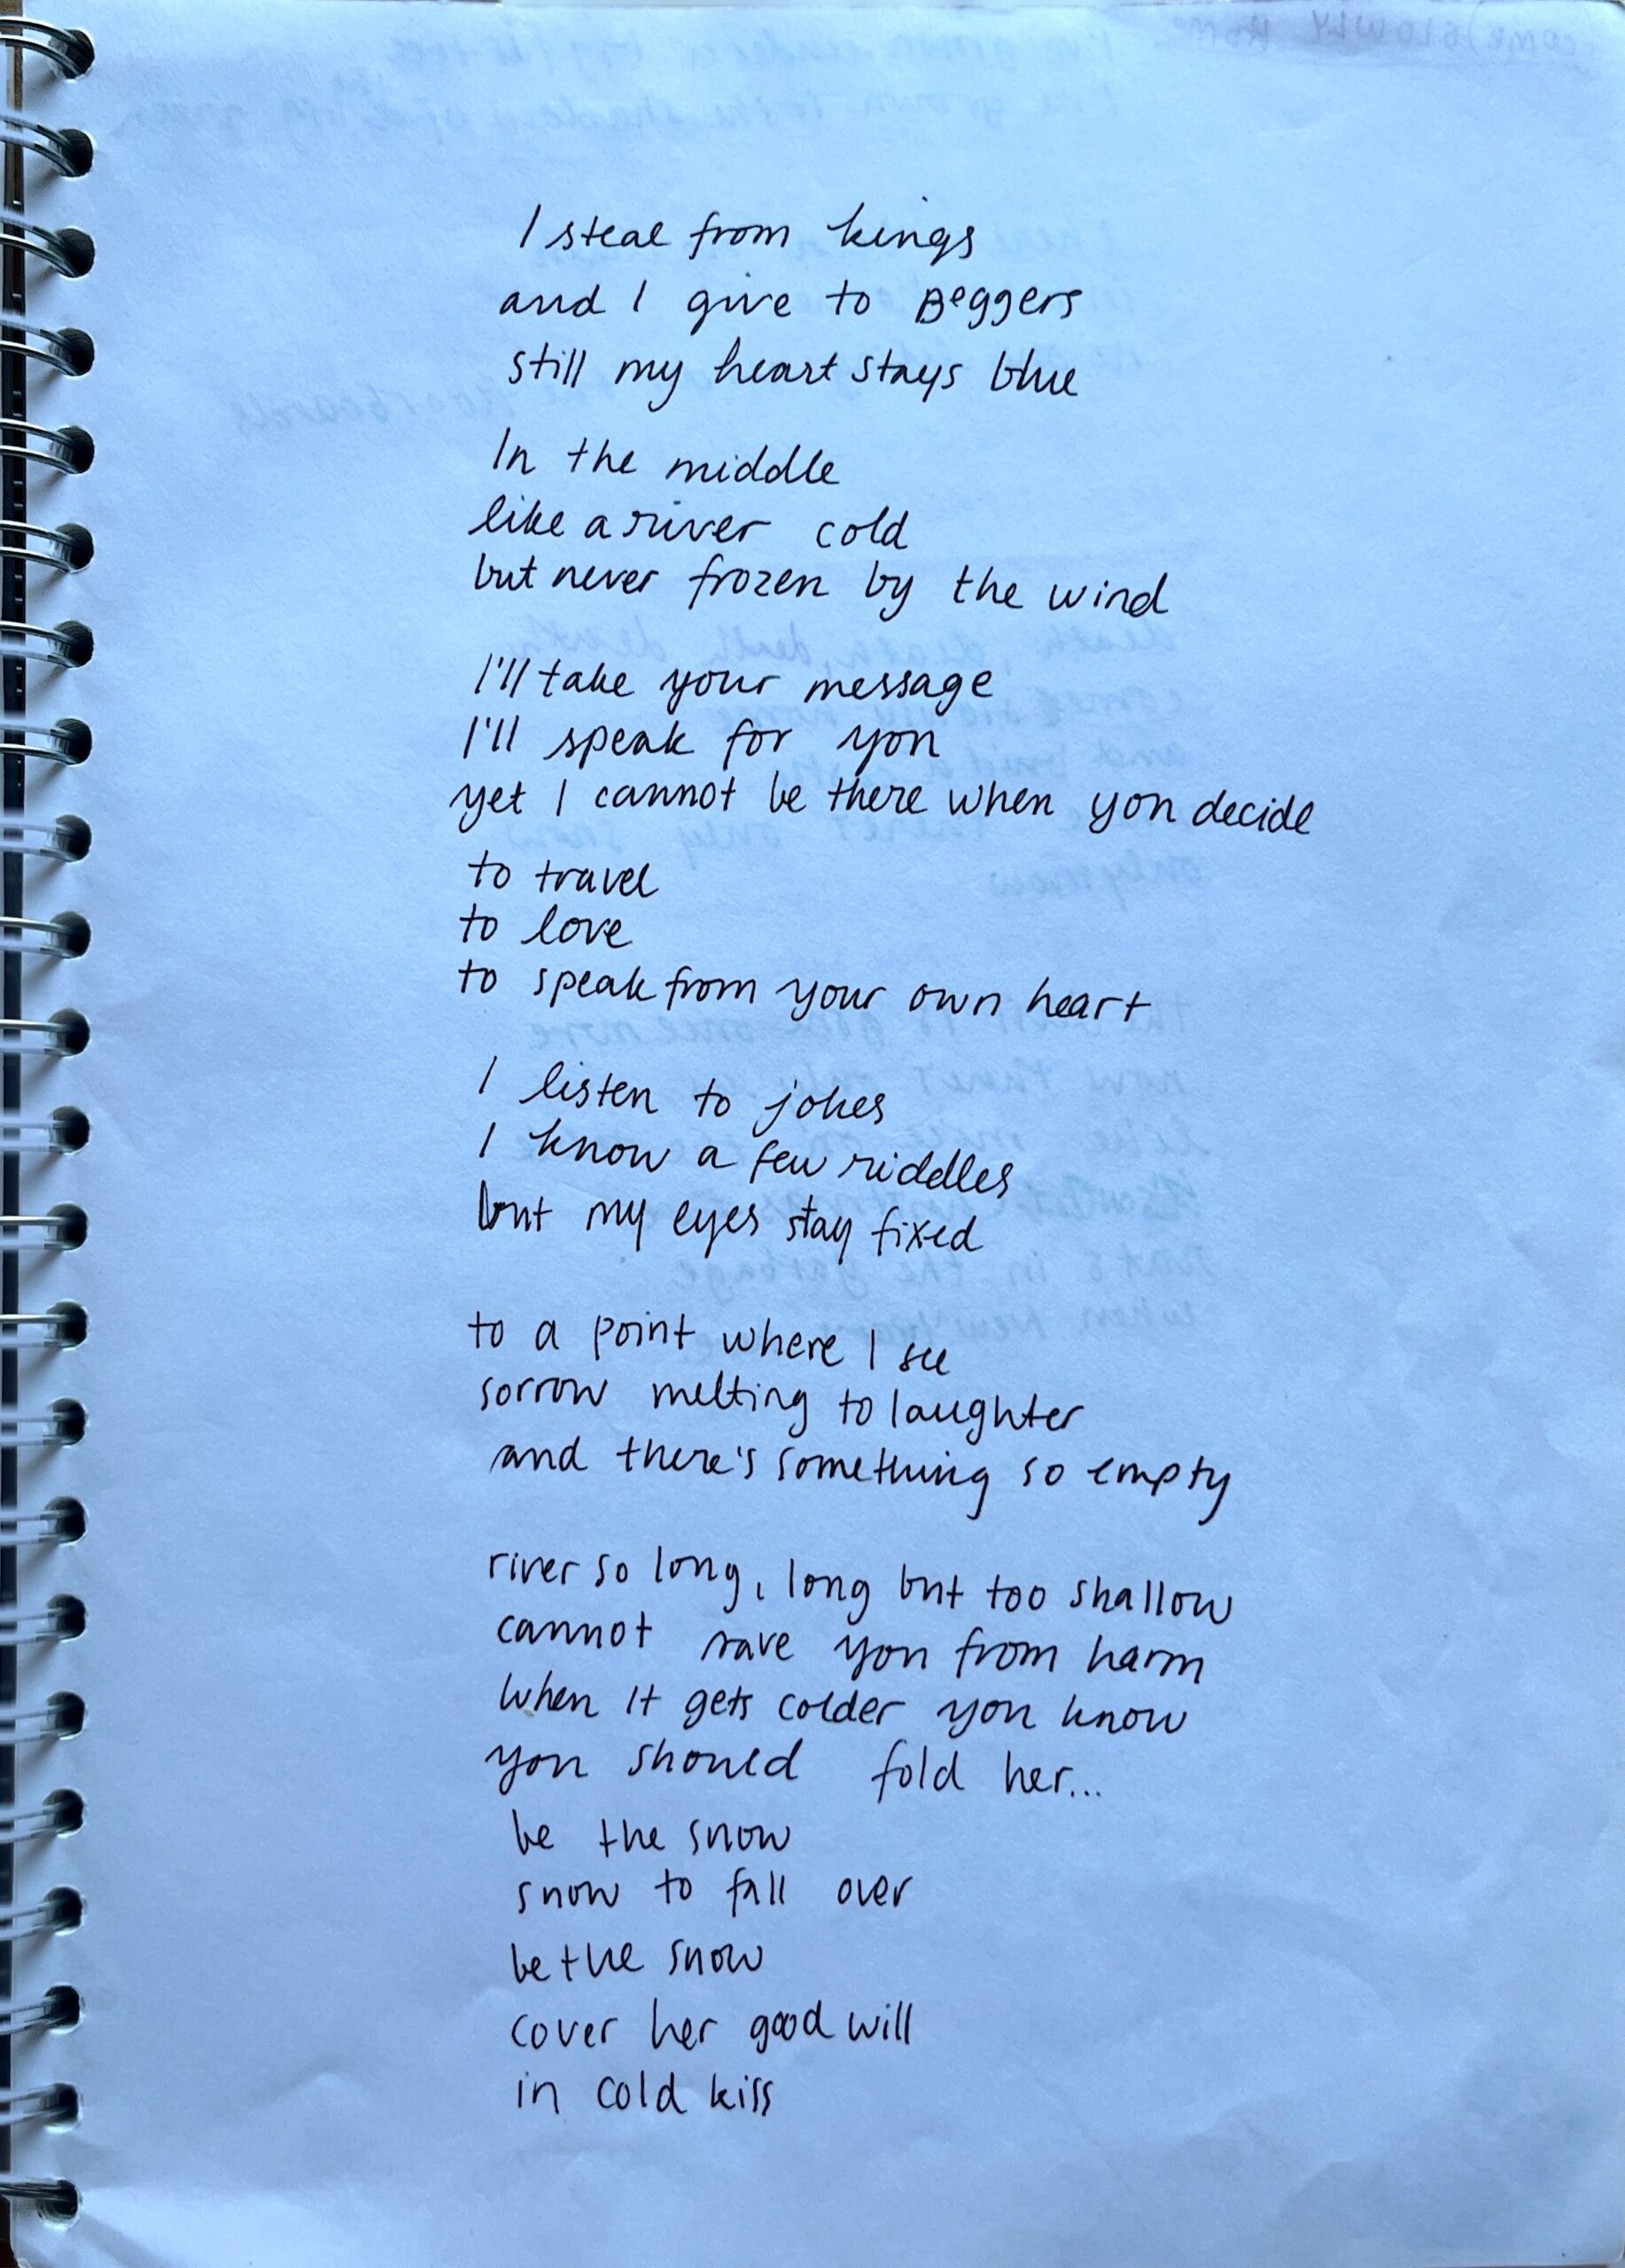 I steal from kings
and I give to Beggers
still my heart stays blue
In the middle
like a river cold
but never frozen by the wind
I'll take your message
I'll speak for you
yet I cannot be there when you decide
to travel
to love
to speak from your own heart
I listen to jokes
I know a few riddles
but my eyes stay fixed
to a point where I see
sorrow melting to laughter
and there's something so empty
river so long, long but too shallow
cannot save you from harm
when it gets colder you know
you should fold her...
be the snow
snow to fall over
be the snow
cover her good will
in cold kiss